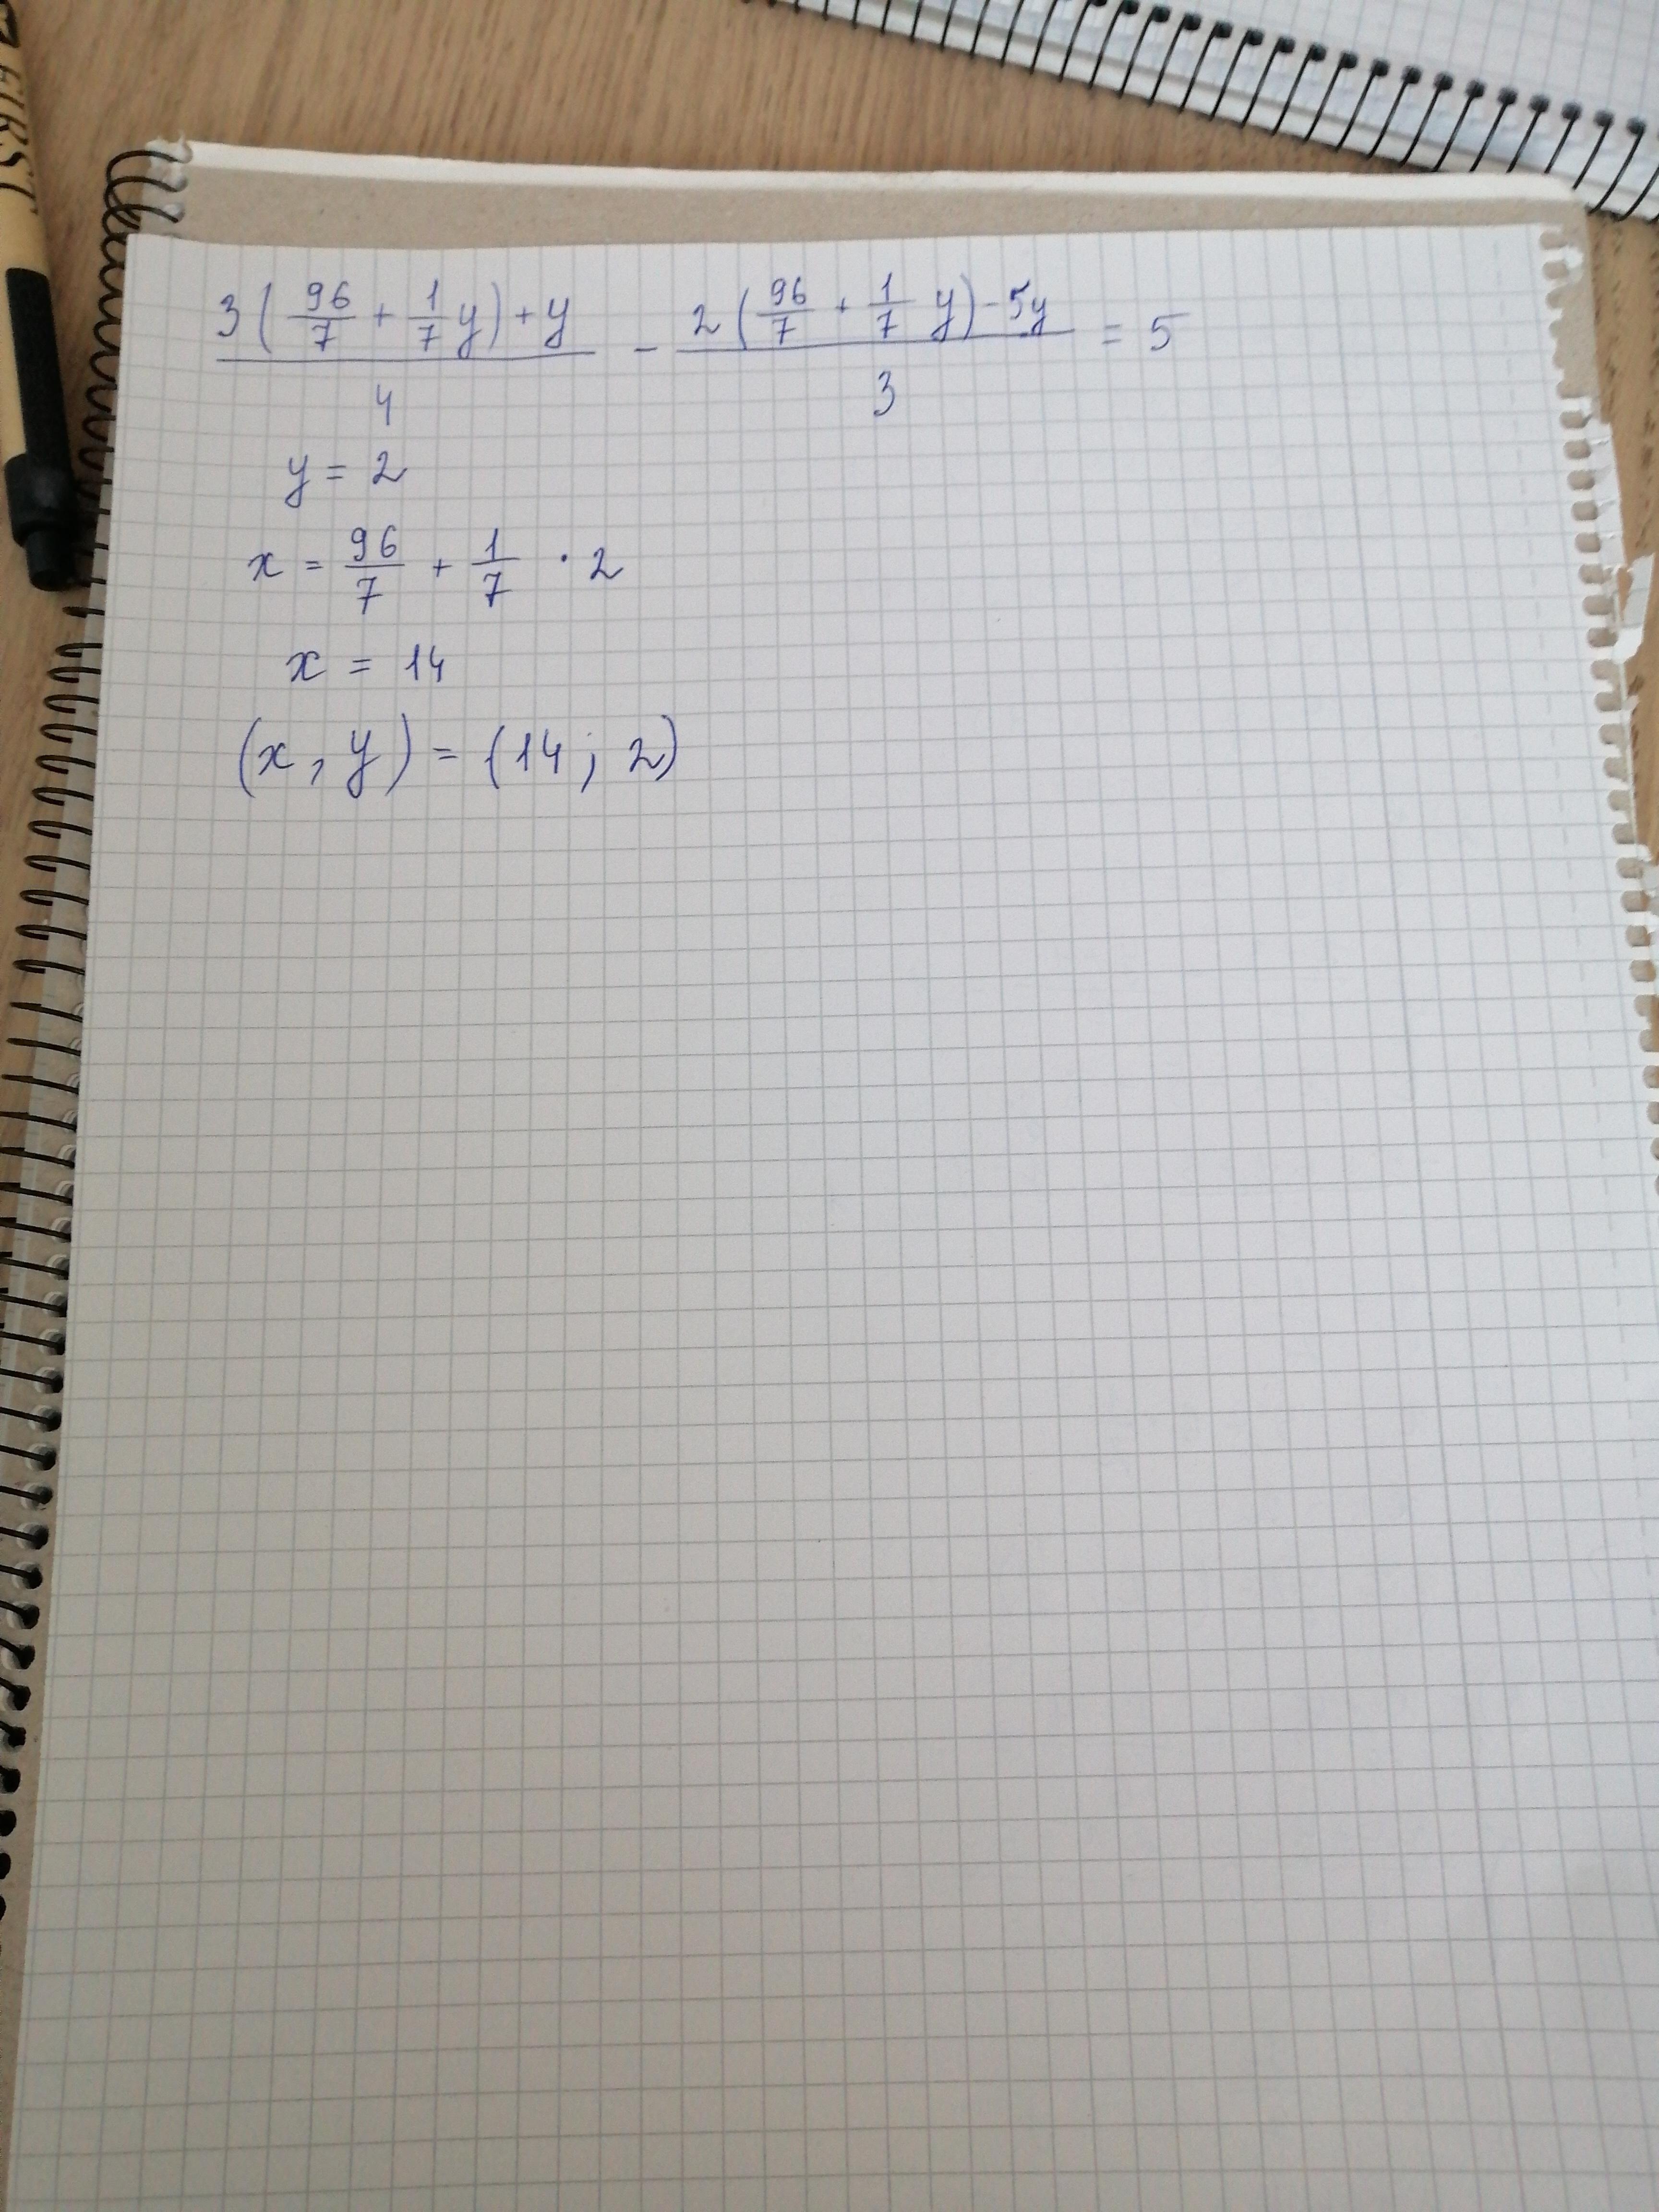 3(96/7 + 1/7 y) + y / 4 - 2(96/7 + 1/7 y) - 5y / 3 = 5
y = 2
x = 96/7 + 1/7 · 2
x = 14
(x, y) = (14; 2)